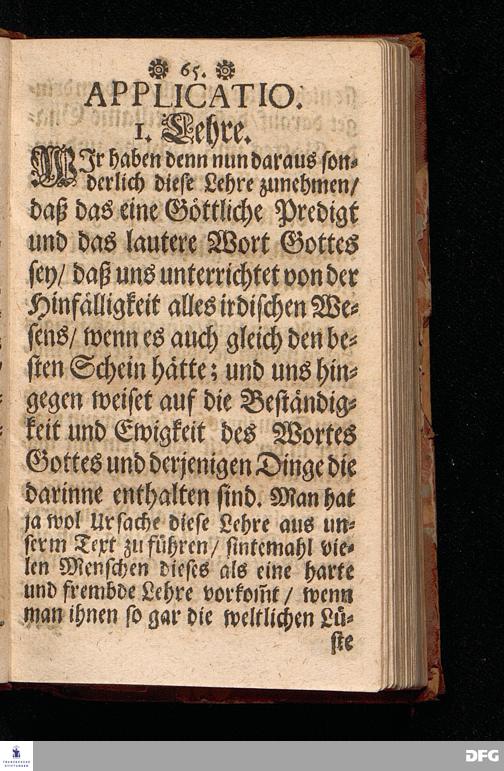 65.
APPLICATIO.
1. Lehre.
WIr haben denn nun daraus son-
derlich diese Lehre zunehmen/
daß das eine Göttliche Predigt
und das lautere Wort Gottes
sey/ daß uns unterrichtet von der
Hinfälligkeit alles irdischen We-
sens/ wenn es auch gleich den be-
sten Schein hätte; und uns hin-
gegen weiset auf die Beständig-
keit und Ewigkeit des Wortes
Gottes und derjenigen Dinge die
darinne enthalten sind. Man hat
ja wol Ursache diese Lehre aus un-
serm Text zu führen/ sintemahl vie-
len Menschen dieses als eine harte
und frembde Lehre vorkom̃t/ wenn
man ihnen so gar die weltlichen Lü-
ste
FRANCKESCHE
STIFTUNGEN
DFG